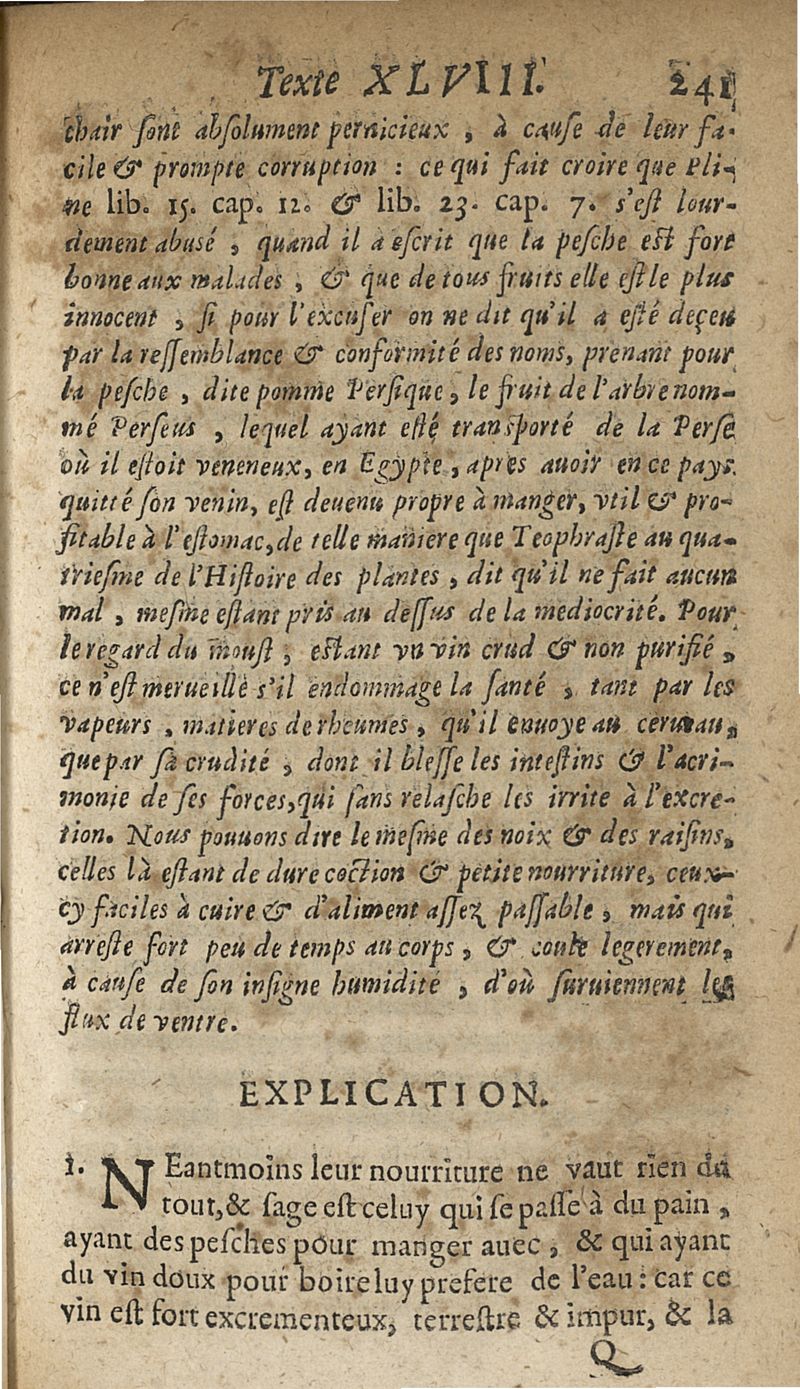 Texte XLVIII. 241
chair sont absolument pernicieux, à cause de leur fa-
cile & prompte corruption : ce qui fait croire que Pli-
ne lib. 15. cap. 12. & lib. 23. cap. 7. s'est lour-
dement abusé, quand il a escrit que la pesche est fort
bonne aux malades, & que de tous fruits elle est le plus
innocent, si pour l'excuser on ne dit qu'il a esté deçeu
par la ressemblance & conformité des noms, prenant pour
la pesche, dite pomme Persique, le fruit de l'arbre nom-
mé Perseus, lequel ayant esté transporté de la Perse
où il estoit veneneux, en Egypte, apres auoir en ce pays
quitté son venin, est deuenu propre à manger, vtil & pro-
fitable à l'estomac, de telle maniere que Teophraste au qua-
triesme de l'Histoire des plantes, dit qu'il ne fait aucun
mal, mesme estant pris au dessus de la mediocrité. Pour
le regard du moust, estant vn vin crud & non purifié,
ce n'est merueille s'il endommage la santé, tant par les
vapeurs, matieres de rheumes, qu'il enuoye au cerueau,
que par sa crudité, dont il blesse les intestins & l'acri-
monie de ses forces, qui sans relasche les irrite à l'excre-
tion. Nous pouuons dire le mesme des noix & des raisins,
celles là estant de dure coction & petite nourriture, ceux-
cy faciles à cuire & d'aliment assez passable, mais qui
arreste fort peu de temps au corps, & coule legerement,
à cause de son insigne humidité, d'où suruiennent les
flux de ventre.
EXPLICATION.
1. NEantmoins leur nourriture ne vaut rien du
tout, & sage est celuy qui se passe à du pain,
ayant des pesches pour manger auec, & qui ayant
du vin doux pour boire luy prefere de l'eau : car ce
vin est fort excrementeux, terrestre & impur, & la
Q